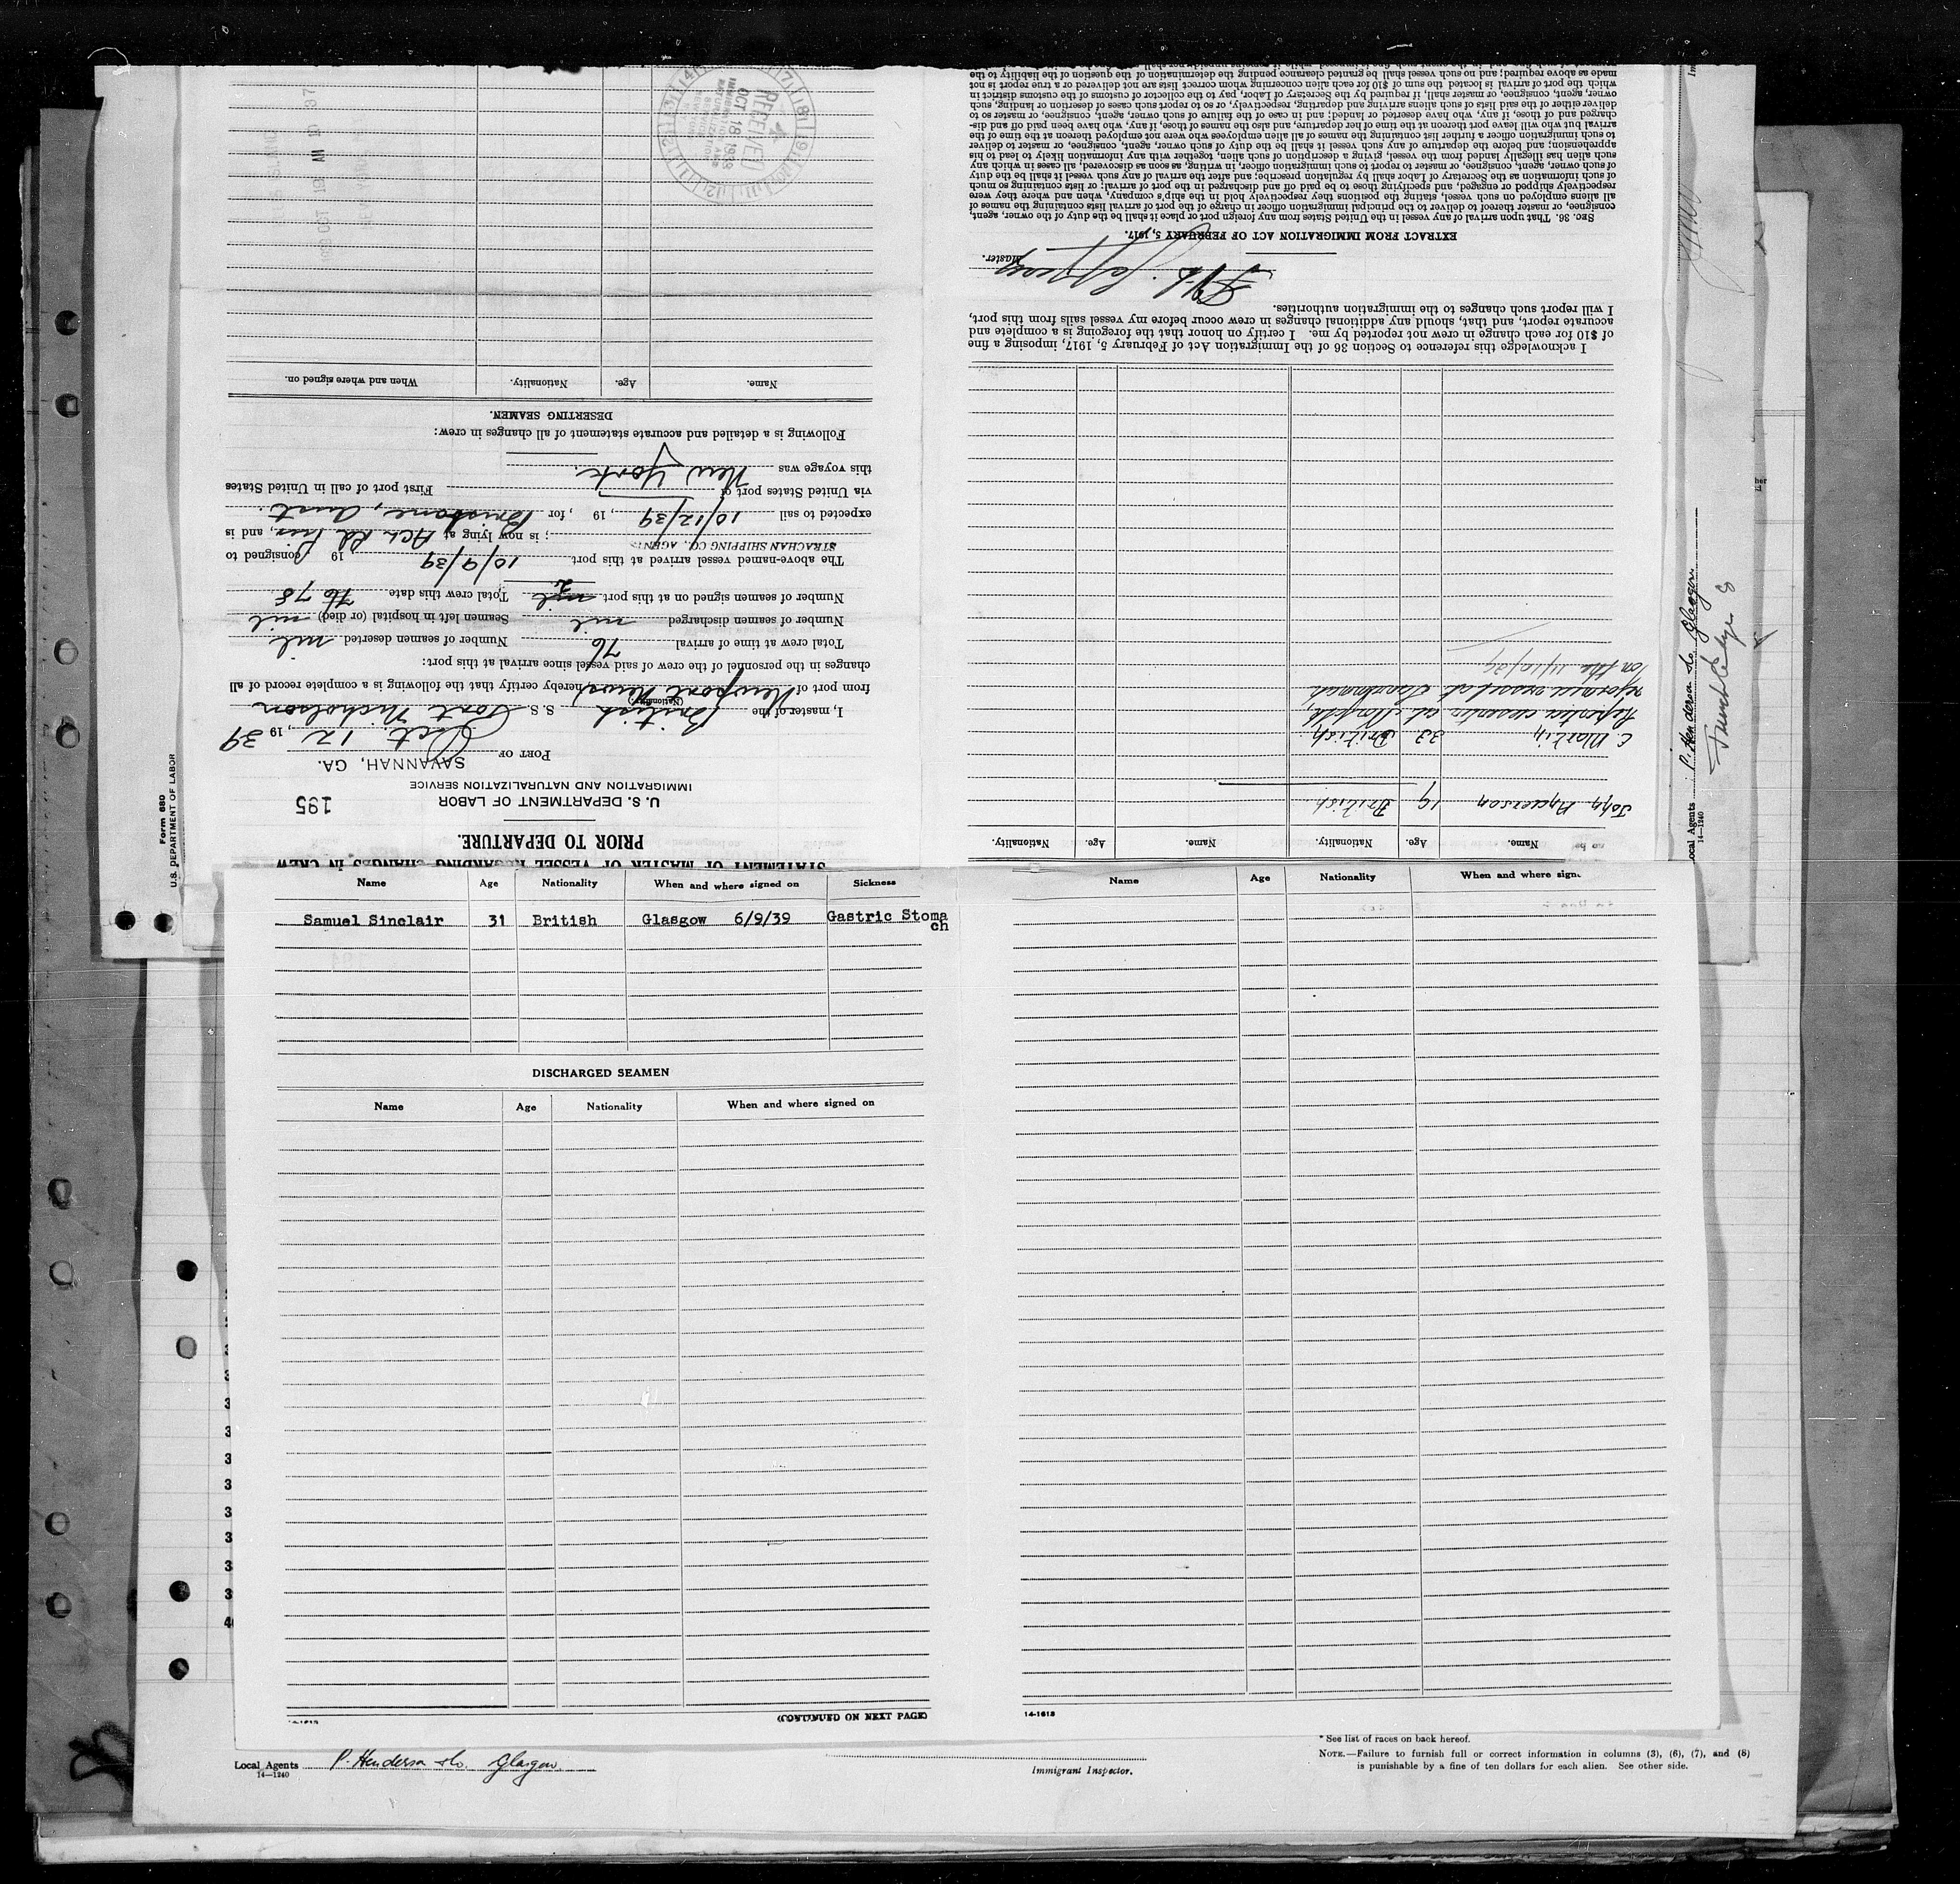 Form 680
U.S. DEPARTMENT OF LABOR
STATEMENT OF MASTER OF VESSEL REGARDING CHANGES IN CREW
PRIOR TO DEPARTURE.
U. S. DEPARTMENT OF LABOR
IMMIGRATION AND NATURALIZATION SERVICE
195
SAVANNAH, GA.
PORT OF
Oct. 12, 19 39
I, master of the British S. S. Port Nicholson
(Nationality)
from port of Newport News, hereby certify that the following is a complete record of all
changes in the personnel of the crew of said vessel since arrival at this port:
Total crew at time of arrival 76 Number of seamen deserted nil
Number of seamen discharged nil Seamen left in hospital (or died) nil
Number of seamen signed on at this port nil 2 Total crew this date 76 78
The above-named vessel arrived at this port 10/9/39 19 consigned to
STRACHAN SHIPPING CO. AGENTS
; is now lying at , and is
expected to sail 10/12/39, 19 , for Brisbane, Aust.
via United States port of First port of call in United States
this voyage was New York.
Following is a detailed and accurate statement of all changes in crew:
DESERTING SEAMEN.
Name. Age. Nationality. When and where signed on.
RECEIVED
OCT 18 1939
IMMIGRATION AND
NATURALIZATION
SERVICE
Name. Age. Nationality. Name. Age. Nationality.
John Anderson 19 British
C. Martin 33 British
Reported deserter at
rejoined vessel at Savannah
on the 11/10/39
I acknowledge this reference to Section 36 of the Immigration Act of February 5, 1917, imposing a fine
of $10 for each change in crew not reported by me. I certify on honor that the foregoing is a complete and
accurate report, and that, should any additional changes in crew occur before my vessel sails from this port,
I will report such changes to the immigration authorities.
Master.
EXTRACT FROM IMMIGRATION ACT OF FEBRUARY 5, 1917.
SEC. 36. That upon arrival of any vessel in the United States from any foreign port or place it shall be the duty of the owner, agent,
consignee, or master thereof to deliver to the principal immigration officer in charge of the port of arrival lists containing the names of
all aliens employed on such vessel, stating the positions they respectively hold in the ship's company, when and where they were
respectively shipped or engaged, and specifying those to be paid off and discharged in the port of arrival; or lists containing so much
of such information as the Secretary of Labor shall by regulation prescribe; and after the arrival of any such vessel it shall be the duty
of such owner, agent, consignee, or master to report to such immigration officer, in writing, as soon as discovered, all cases in which any
such alien has illegally landed from the vessel, giving a description of such alien, together with any information likely to lead to his
apprehension; and before the departure of any such vessel it shall be the duty of such owner, agent, consignee, or master to deliver
to such immigration officer a further list containing the names of all alien employees who were not employed thereon at the time of the
arrival but who will leave port thereon at the time of her departure, and also the names of those, if any, who have been paid off and dis-
charged and of those, if any, who have deserted or landed; and in case of the failure of such owner, agent, consignee, or master so to
deliver either of the said lists of such aliens arriving and departing, respectively, or so to report such cases of desertion or landing, such
owner, agent, consignee, or master shall, if required by the Secretary of Labor, pay to the collector of customs of the customs district in
which the port of arrival is located the sum of $10 for each alien concerning whom correct lists are not delivered or a true report is not
made as above required; and no such vessel shall be granted clearance pending the determination of the question of the liability to the
Local Agents P. Henderson & Co. Glasgow
14-1240
Name Age Nationality When and where signed on Sickness
Samuel Sinclair 31 British Glasgow 6/9/39 Gastric Stoma
ch
DISCHARGED SEAMEN
Name Age Nationality When and where signed on
(CONTINUED ON NEXT PAGE)
Name Age Nationality When and where sign
14-1613
Local Agents P. Henderson & Co. Glasgow
14-1240
Immigrant Inspector.
* See list of races on back hereof.
NOTE.—Failure to furnish full or correct information in columns (3), (6), (7), and (8)
is punishable by a fine of ten dollars for each alien. See other side.